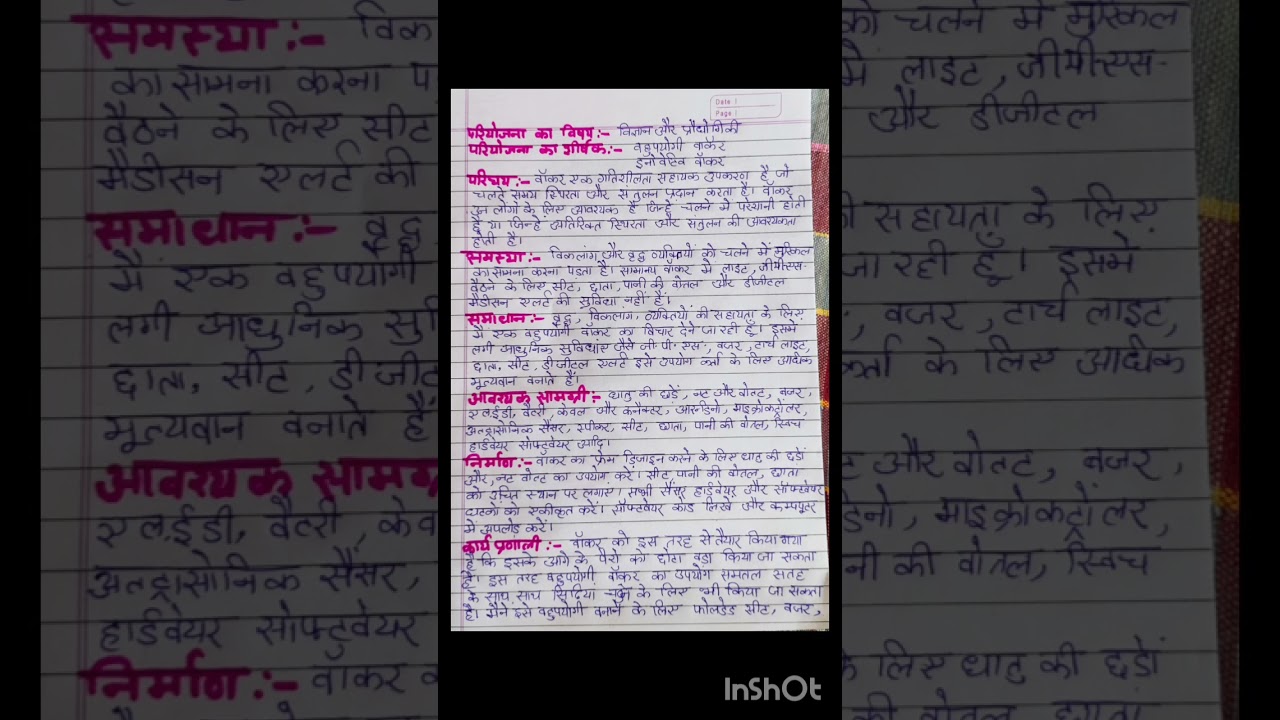 Date |
Page |
परियोजना का विषय :- विज्ञान और प्रौद्योगिकी
परियोजना का शीर्षक :- बहुपयोगी वॉकर
इनोवेटिव वॉकर
परिचय :- वॉकर एक गतिशीलता सहायक उपकरण है जो
चलते समय स्थिरता और संतुलन प्रदान करता है। वॉकर
उन लोगों के लिए आवश्यक है जिन्हे चलने में परेशानी होती
है या जिन्हें अतिरिक्त स्थिरता और संतुलन की आवश्यकता
होती है।
समस्या :- विकलांग और वृद्ध व्यक्तियों को चलने में मुस्किल
का सामना करना पड़ता है। सामान्य वॉकर मे लाइट, जीपीएस-
बैठने के लिए सीट, छाता, पानी की बोतल और डीजीटल
मैडीसन एलर्ट की सुविधा नहीं है।
समाधान :- वृद्ध, विकलांग, व्यक्तियों की सहायता के लिए
मैं एक बहुपयोगी वॉकर का विचार देने जा रही हूँ। इसमे
लगी आधुनिक सुविधाएं जैसे जी. पी. एस., बजर, टार्च लाइट,
छाता, सीट, डीजीटल एलर्ट इसे उपयोग कर्ता के लिए अधिक
मूल्यवान बनाते हैं।
आवश्यक सामग्री :- धातु की छड़ें, नट और वोल्ट, बजर,
एलईडी, बैटरी, केवल और कनेक्टर, आरडिनो, माइक्रोकंट्रोलर,
अल्ट्रासोनिक सैंसर, स्पीकर, सीट, छाता, पानी की बोतल, स्विच
हार्डवेयर सॉफ्टवेयर आदि।
निर्माण :- वॉकर का फ्रेम डिजाइन करने के लिए धातु की छड़ों
और, नट वोल्ट का उपयोग करें। सीट, पानी की बोतल, छाता
को उचित स्थान पर लगाए। सभी सैंसर हार्डवेयर और सॉफ्टवेयर
घटकों को एकीकृत करें। सॉफ्टवेयर कोड लिखे और कम्प्यूटर
में अपलोड करें।
कार्य प्रणाली :- वॉकर को इस तरह से तैयार किया गया
है कि इसके आगे के पैरो को छोटा बड़ा किया जा सकता
है। इस तरह बहुपयोगी वॉकर का उपयोग समतल सतह
के साथ साथ सिढ़िया चढ़ने के लिए भी किया जा सकता
है। मैने इसे बहुपयोगी बनाने के लिए फोल्डेड सीट, बजर,
InShOt